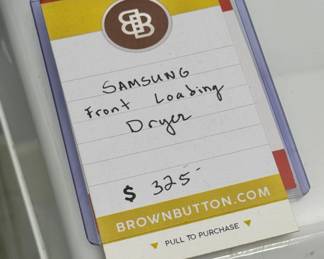 SAMSUNG
Front Loading
Dryer
$ 325-
BROWNBUTTON.COM
PULL TO PURCHASE